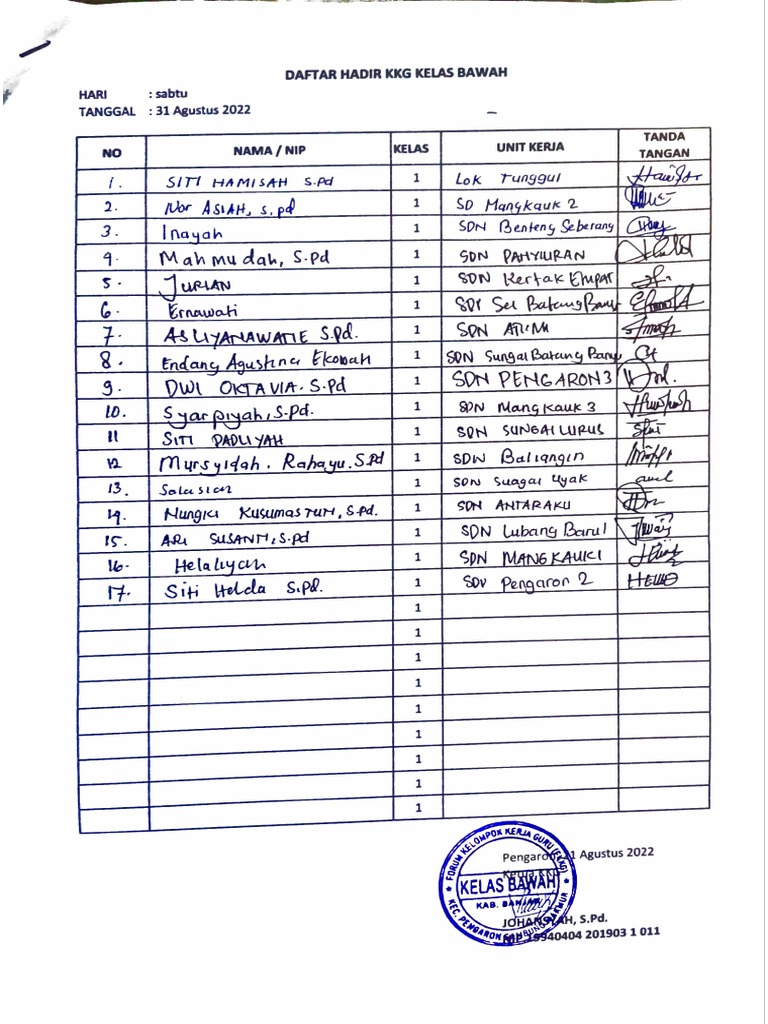 DAFTAR HADIR KKG KELAS BAWAH
HARI : sabtu
TANGGAL : 31 Agustus 2022
NO NAMA / NIP KELAS UNIT KERJA TANDA TANGAN
1. SITI HAMISAH S.Pd 1 Lok Tunggul
2. Nor ASIAH, S.pd 1 SD Mangkauk 2
3. Inayah 1 SDN Benteng Seberang
4. Mahmudah, S.Pd 1 SDN PANYIURAN
5. JURIAN 1 SDN Kertak EMPAT
6. Ernawati 1 Batang Banyu
7. ASLIYANAWATIE S.Pd. 1 SDN
8. Endang Agustina Ekowah 1 SDN Sungai Batang Banyu
9. DWI OKTAVIA. S.Pd 1 SDN PENGARON 3
10. Syarpiyah, S.Pd. 1 SDN Mangkauk 3
11 SITI PADLIYAH 1 SDN SUNGAI LURUS
12 Mursyidah. Rahayu. S.Pd 1 SDN Baliangin
13. 1 SDN
14. Nungki KusumasTUTI, S.Pd. 1 SDN ANTARAKU
15. ARI SUSANTI, S.pd 1 SDN Lubang Baru 1
16. Helaliyah 1 SDN MANGKAUK 1
17. Siti Helda S.Pd. 1 SDN Pengaron 2
1
1
1
1
1
1
1
1
1
Pengaron, 31 Agustus 2022
Ketua KKG
FORUM KELOMPOK KERJA GURU (FKKG)
KELAS BAWAH
KAB. BANJAR
KEC. PENGARON SAMBUNG MAKMUR
JOHANSYAH, S.Pd.
NIP.19940404 201903 1 011